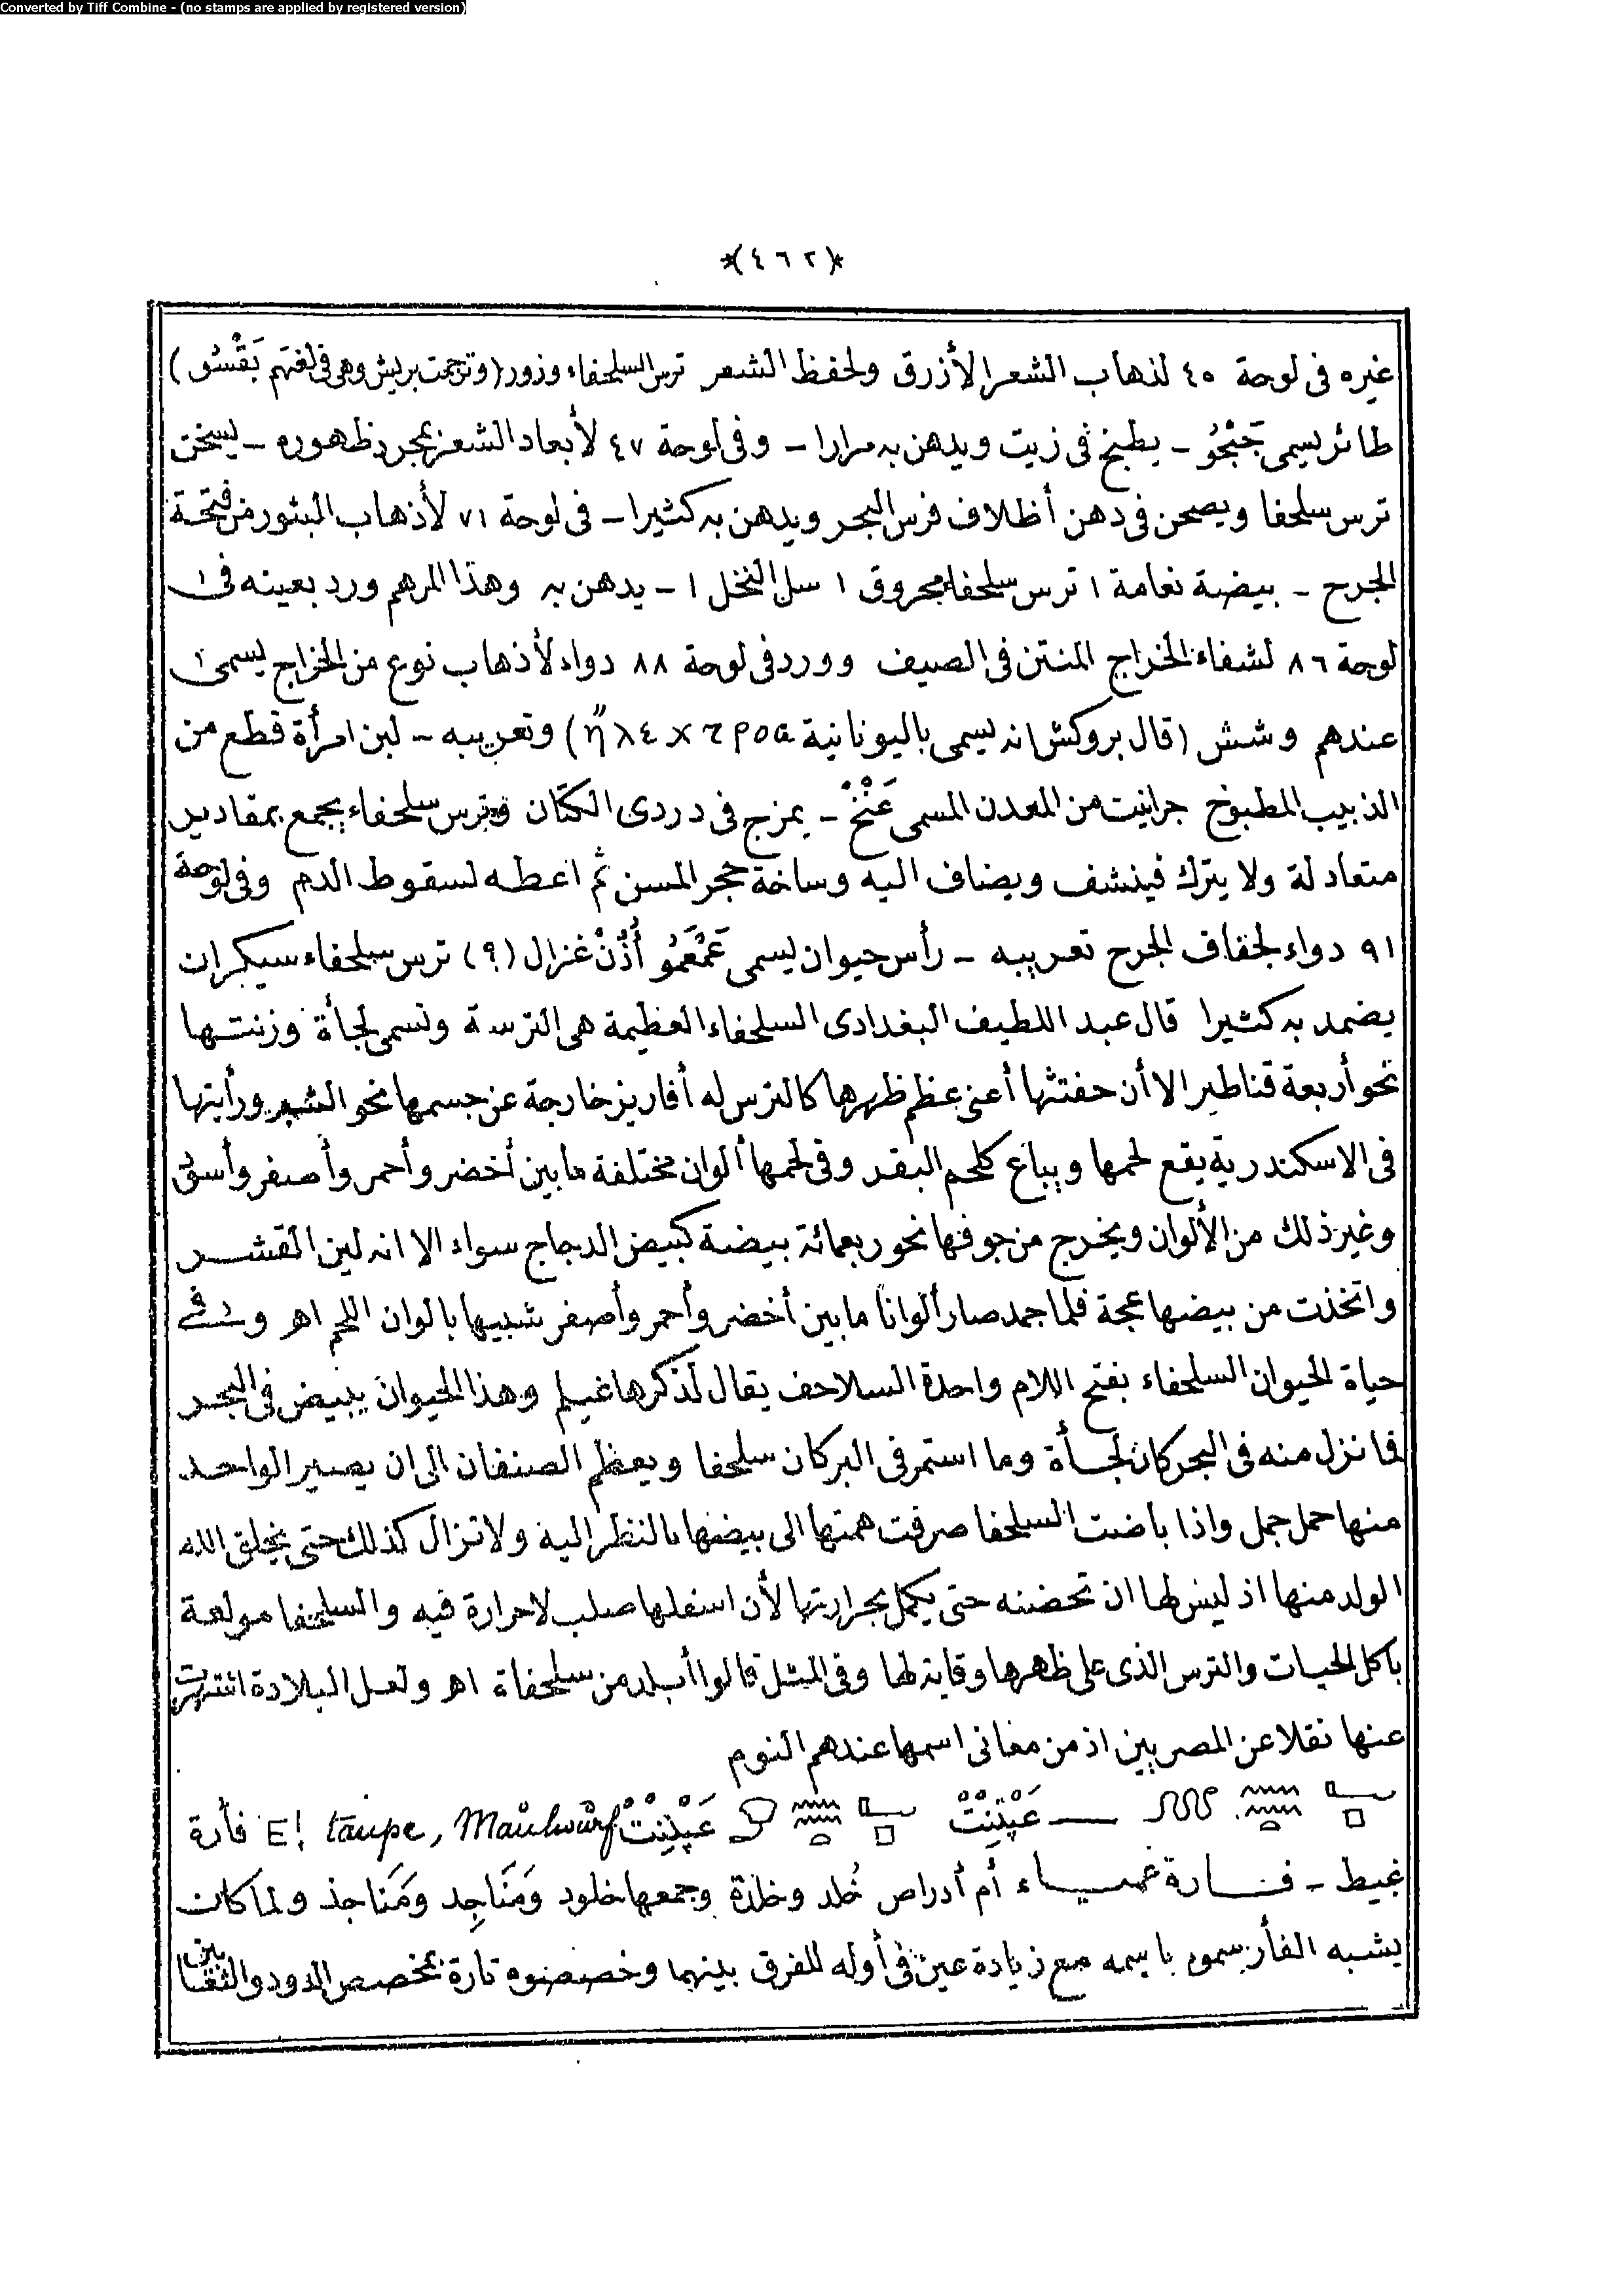 Converted by Tiff Combine - (no stamps are applied by registered version)
*(٤٦٢)*
غيره فى لوحة ٤٥ لذهاب الشعر الأزرق ولحفظ الشعر ترس السلحفاء وزور (وترجمت بريش وهى فى لغتهم بَقْسُو)
طائر يسمى جَبْجُو - يطبخ فى زيت ويدهن به مرارا - وفى لوحة ٤٧ لأبعاد الشعر بمجرد ظهوره - يسخن
ترس سلحفا ويصحن فى دهن أظلاف فرس البحر ويدهن به كثيرا - فى لوحة ٧١ لأذهاب البثور من فتحة
الجرح - بيضة نعامة ١ ترس سلحفاء محروق ١ سل النخل ١ - يدهن به وهذا المرهم ورد بعينه فى
لوحة ٨٦ لشفاء الخراج المنتن فى الصيف وورد فى لوحة ٨٨ دواء لأذهاب نوع من الخراج يسمى
عندهم وشش (قال بروكش انه يسمى باليونانية) وتعريبه - لبن امرأة قطع من
الذبيب المطبوخ جرانيت من المعدن المسمى عَنْخْ - يمزج فى دردى الكتان وترس سلحفاء يجمع بمقادير
متعادلة ولا يترك فينشف ويضاف اليه وساخة حجر المسن ثم اعطه لسقوط الدم وفى لوحة
٩١ دواء لجفاف الجرح تعريبه - رأس حيوان يسمى عَمْعَمُو أُذُنْ غزال (؟) ترس سلحفاء سيكران
يضمد به كثيرا قال عبد اللطيف البغدادى السلحفاء العظيمة هى الترسة وتسمى لجأة وزنتها
نحو أربعة قناطير الا أن حفتثها أعنى عظم ظهرها كالترس له أفاريز خارجة عن جسمها نحو الشبر ورأيتها
فى الاسكندرية يقع لحمها ويباع كلحم البقر وفى لحمها ألوان مختلفة ما بين أخضر وأحمر وأصفر وأسود
وغير ذلك من الألوان ويخرج من جوفها نحو ربعمائة بيضة كبيض الدجاج سواء الا انه لين القشر
واتخذت من بيضها عجة فلما جمد صار ألوانا ما بين أخضر وأحمر وأصفر شبيها بالوان اللحم اهر وفى
حياة الحيوان السلحفاء بفتح اللام واحدة السلاحف يقال لذكرها غيلم وهذا الحيوان يبيض فى البحر
فما نزل منه فى البحر كان لجأة وما استمر فى البر كان سلحفا ويعظم الصنفان الى ان يصير الواحد
منها حمل جمل واذا باضت السلحفا صرفت همتها الى بيضها بالنظر اليه ولا تزال كذلك حتى يخلق الله
الولد منها اذ ليس لها ان تحضنه حتى يكمل بحرارتها لأن اسفلها صلب لا حرارة فيه والسلحفا مولعة
باكل الحيات والترس الذى على ظهرها وقاية لها وفى المثل قالوا أبلد من سلحفاة اهر ولعل البلادة اشتهرت
عنها نقلا عن المصريين اذ من معانى اسمها عندهم النوم
عَپْنِنْتْ عَپْنِنْتْ E! taupe, Maulwurf فأرة
غيط - فارة عمياء أم أدراص خُلد وخلدة وجمعها خلود ومَنَاجِد ومَنَاجذ ولما كان
يشبه الفأر سموه باسمه مع زيادة عين فى أوله للفرق بينهما وخصصوه تارة بمخصص الدود والثعابين